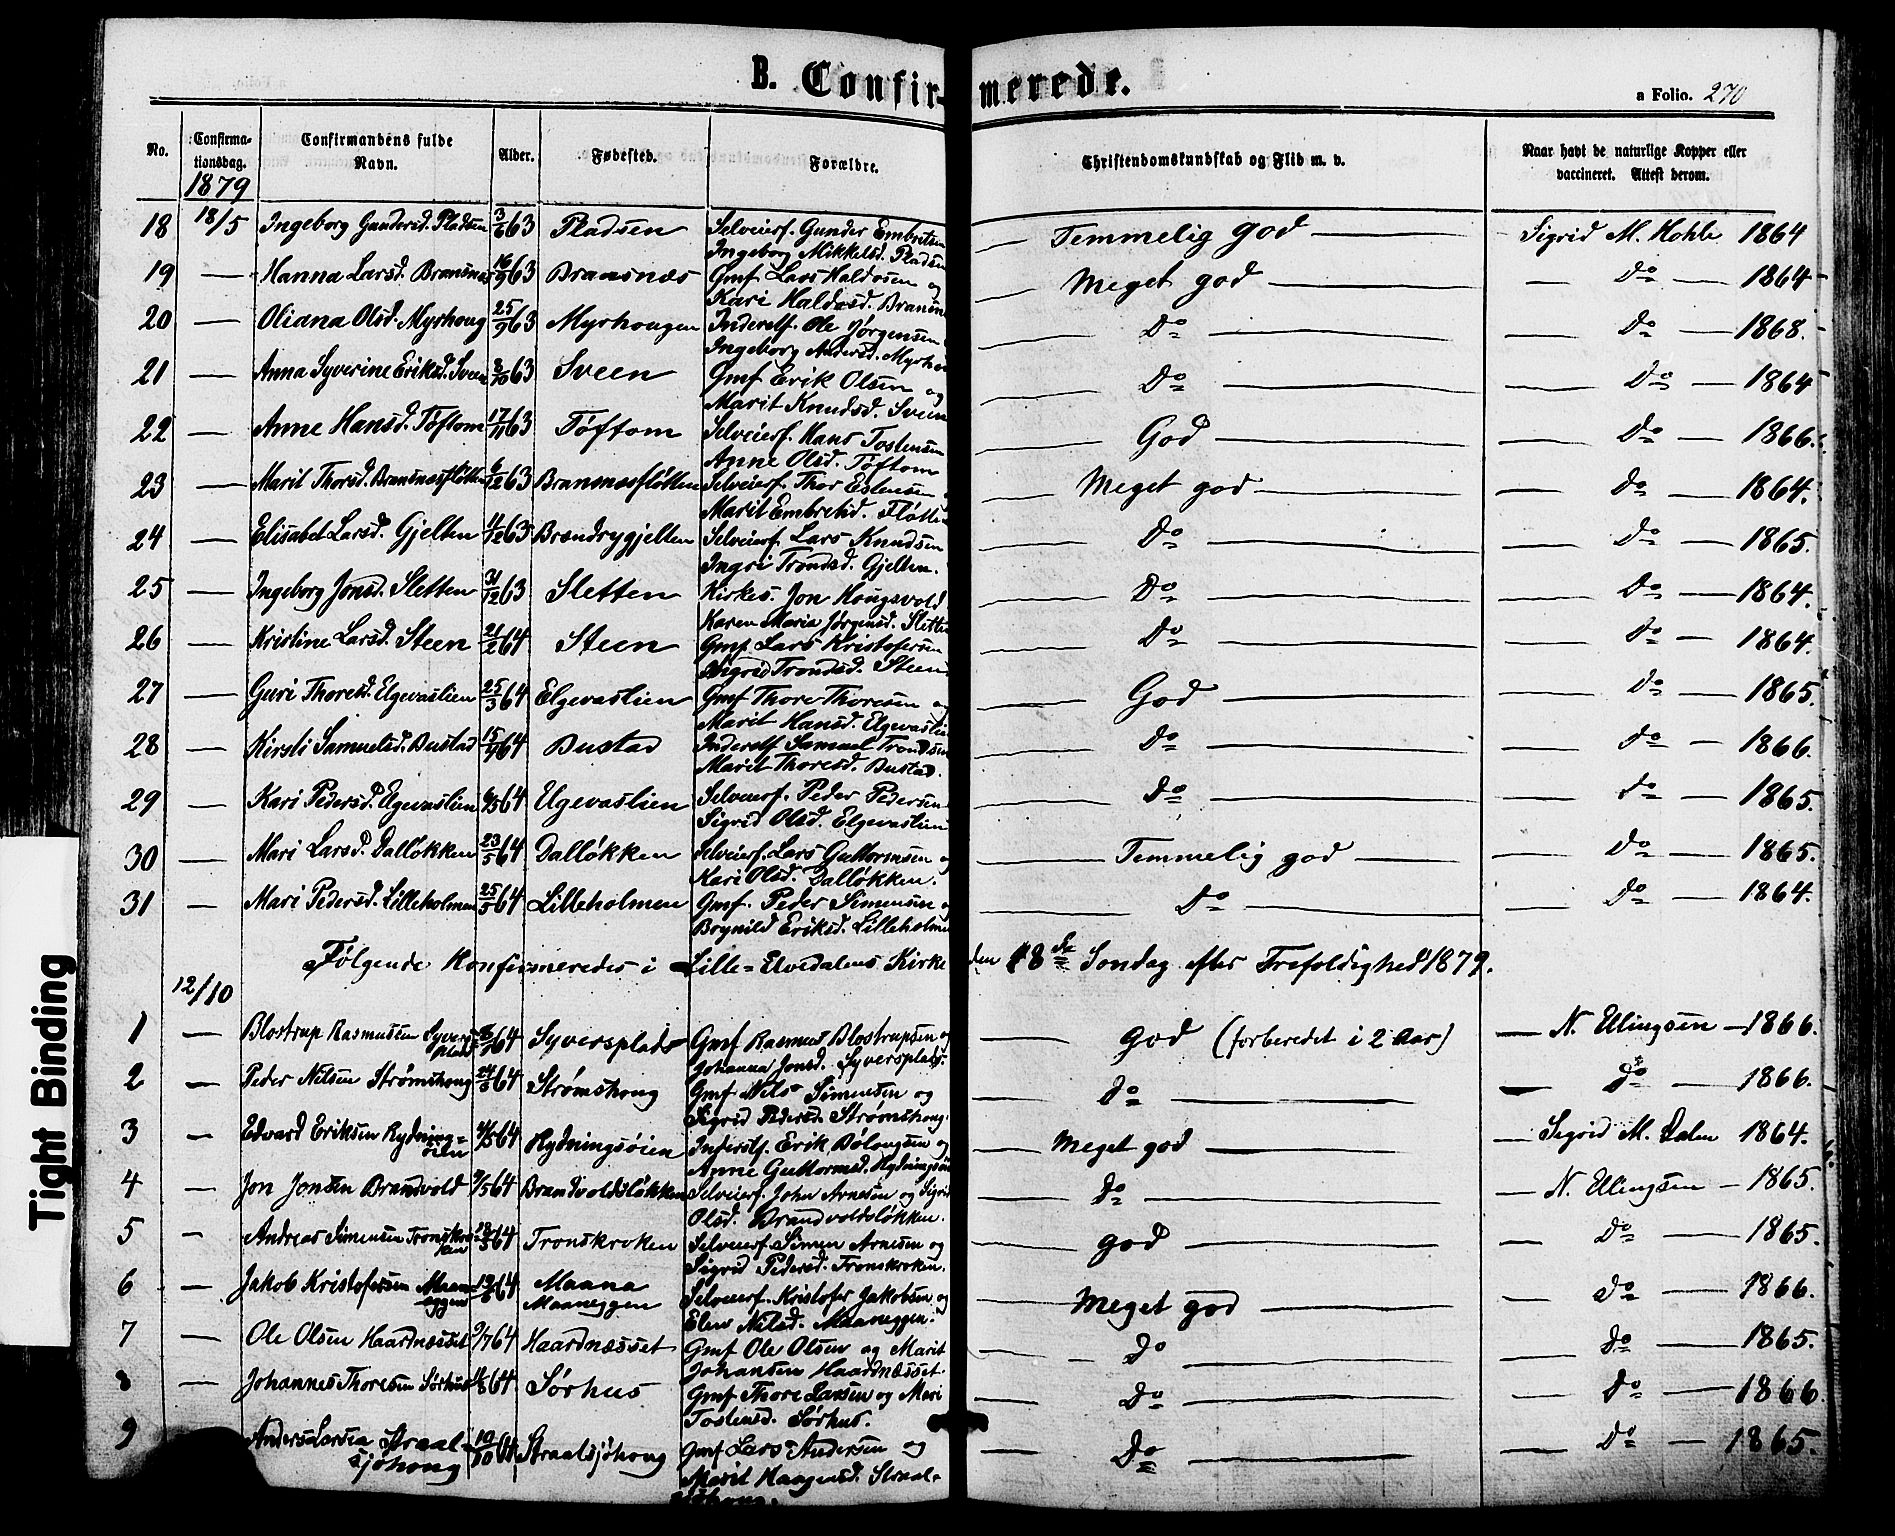 B. Confirmerede.
a Folio. 270
No. Confirmationsdag. Confirmandens fulde Navn. Alder. Fødested. Forældre. Christendomskundskab og Flid m. v. Naar havt de naturlige Kopper eller vaccineret. Attest derom.
1879
18 18/5 Ingeborg Gundersd. Pladsen 3/6 63 Pladsen Selveierf. Gunder Embretsen — Temmelig god — Sigrid M. Hohle 1864
Ingeborg Mikkelsd. Pladsen
19 — Hanna Larsd. Bransnæs 16/9 63 Bransnæs Gmf Lars Haldosen og — Meget god — Do — 1864
Kari Haldosd. Bransn
20 — Oliana Olsd. Myrhoug 25/9 63 Myrhougen Inderstf. Ole Jørgensen — Do — Do — 1868.
Ingeborg Andersd. Myrhou
21 — Anna Syverine Eriksd. Sveen /10 63 Sveen Gmf Erik Olsen og — Do — Do — 1864
Marit Knudsd. Sveen
22 — Anne Hansd. Tøftom 17/11 63 Tøftom Selveierf. Hans Tostensen — God — Do — 1866.
Anne Olsd. Tøftom
23 — Marit Thorsd. Bransnæsfløtten 6/12 63 Bransnæsfløtten Selveierf. Thor Estensen — Meget god — Do — 1864.
Marit Embretsd. Fløtten
24 — Elisabet Larsd. Gjelten 11/12 63 Brændrygjelten Selveierf. Lars Knudsen — Do — Do — 1865.
Ingri Trondsd. Gjelten.
25 — Ingeborg Jonsd. Sletten 31/12 63 Sletten Kirkes. Jon Hougsvold — Do — Do — 1864.
Karen Maria Jørgensd. Slette
26 — Kristine Larsd. Steen 21/2 64 Steen Gmf Lars Kristofersen — Do — Do — 1864.
Sigrid Trondsd. Steen
27 — Guri Thoresd. Elgevaslien 25/3 64 Elgevaslien Gmf Thore Thoresen og — God — Do — 1865.
Marit Hansd. Elgevaslie
28 — Kirsti Samuelsd. Bustad 15/4 64 Bustad Inderstf Samuel Trondsen — Do — Do — 1866.
Marit Thoresd. Bustad.
29 — Kari Pedersd. Elgevaslien /5 64 Elgevaslien Selveierf. Peder Pedersen — Do — Do — 1865.
Sigrid Olsd. Elgevaslien
30 — Mari Larsd. Dalløkken 23/5 64 Dalløkken Selveierf. Lars Guttormsen og — Temmelig god — Do — 1865.
Kari Olsd. Dalløkken.
31 — Mari Pedersd. Lilleholmen 25/5 64 Lilleholmen Gmf. Peder Simensen o — Do — Do — 1864.
Brynild Eriksd. Lilleholme
Følgende Konfirmeredes i Lille-Elvedalens Kirke den 18de Søndag efter Trefoldighed 1879.
12/10
1 — Blostrup Rasmussen Syversplads 64 Syversplads Gmf Rasmus Blostrupsen og — God (forberedet i 2 Aar) — N. Ellingsen — 1866.
Johanna Jonsd. Syversplads.
2 — Peder Nilsen Strømshoug 64 Strømshoug Gmf Nils Simensen og — Do — Do — 1866.
Sigrid Pedersd. Strømshoug.
3 — Edvard Eriksen Rydningsøien /5 64 Rydningsøien Inderstf. Erik Bølangsen og — Meget god — Sigrid M. Dalen 1864.
Anne Guttormsd. Rydningsøi
4 — Jon Jonsen Brandvold /5 64 Brandvoldsløkken Selveierf. John Arnesen og Sigrid — Do — N. Ellingsen — 1865.
Olsd. Brandvoldsløkken.
5 — Andreas Simensen Tronskroken 18/5 64 Tronskroken Selveierf. Simen Arnesen og — God — Do — 1865.
Sigrid Pedersd. Tronskroken.
6 — Jakob Kristofersen Maaneggen 64 Maana Maaneggen Selveierf. Kristofer Jakobsen og — Meget god — Do — 1866.
Elen Nilsd. Maaneggen.
7 — Ole Olsen Haardnæsset 9/7 64 Haardnæsset Gmf Ole Olsen og Marit — Do — Do — 1865.
Johansen Haardnæsset.
8 — Johannes Thoresen Sørhus /8 64 Sørhus Gmf Thore Larsen og Mari — Do — Do — 1866
Tostensd. Sørhus.
9 Anders Larsen Straalsjøhoug 10/10 64 Straalsjøhoug Gmf Lars Andersen og — Do — Do — 1865.
Marit Haagensd. Straal-
Tight Binding